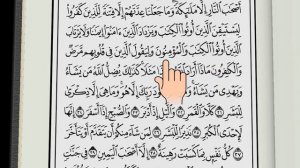 أَصْحَٰبَ ٱلنَّارِ إِلَّا مَلَٰٓئِكَةً وَمَا جَعَلْنَا عِدَّتَهُمْ إِلَّا فِتْنَةً لِّلَّذِينَ كَفَرُوا۟
لِيَسْتَيْقِنَ ٱلَّذِينَ أُوتُوا۟ ٱلْكِتَٰبَ وَيَزْدَادَ ٱلَّذِينَ ءَامَنُوٓا۟ إِيمَٰنًا وَلَا يَرْتَابَ
ٱلَّذِينَ أُوتُوا۟ ٱلْكِتَٰبَ وَٱلْمُؤْمِنُونَ وَلِيَقُولَ ٱلَّذِينَ فِى قُلُوبِهِم مَّرَضٌ
وَٱلْكَٰفِرُونَ مَاذَآ أَرَادَ مَثَلًا كَذَٰلِكَ يُضِلُّ ٱللَّهُ مَن يَشَآءُ
وَيَهْدِى مَن يَشَآءُ رَبِّكَ إِلَّا هُوَ وَمَا هِىَ إِلَّا ذِكْرَىٰ
لِلْبَشَرِ ٣١ كَلَّا وَٱلْقَمَرِ ٣٢ وَٱلَّيْلِ إِذْ أَدْبَرَ ٣٣ وَٱلصُّبْحِ إِذَآ أَسْفَرَ ٣٤ إِنَّهَا
لَإِحْدَى ٱلْكُبَرِ ٣٥ نَذِيرًا لِّلْبَشَرِ ٣٦ لِمَن شَآءَ مِنكُمْ أَن يَتَقَدَّمَ أَوْ يَتَأَخَّرَ
٣٧ كُلُّ نَفْسٍۭ بِمَا كَسَبَتْ رَهِينَةٌ ٣٨ إِلَّآ أَصْحَٰبَ ٱلْيَمِينِ ٣٩ فِى جَنَّٰتٍ